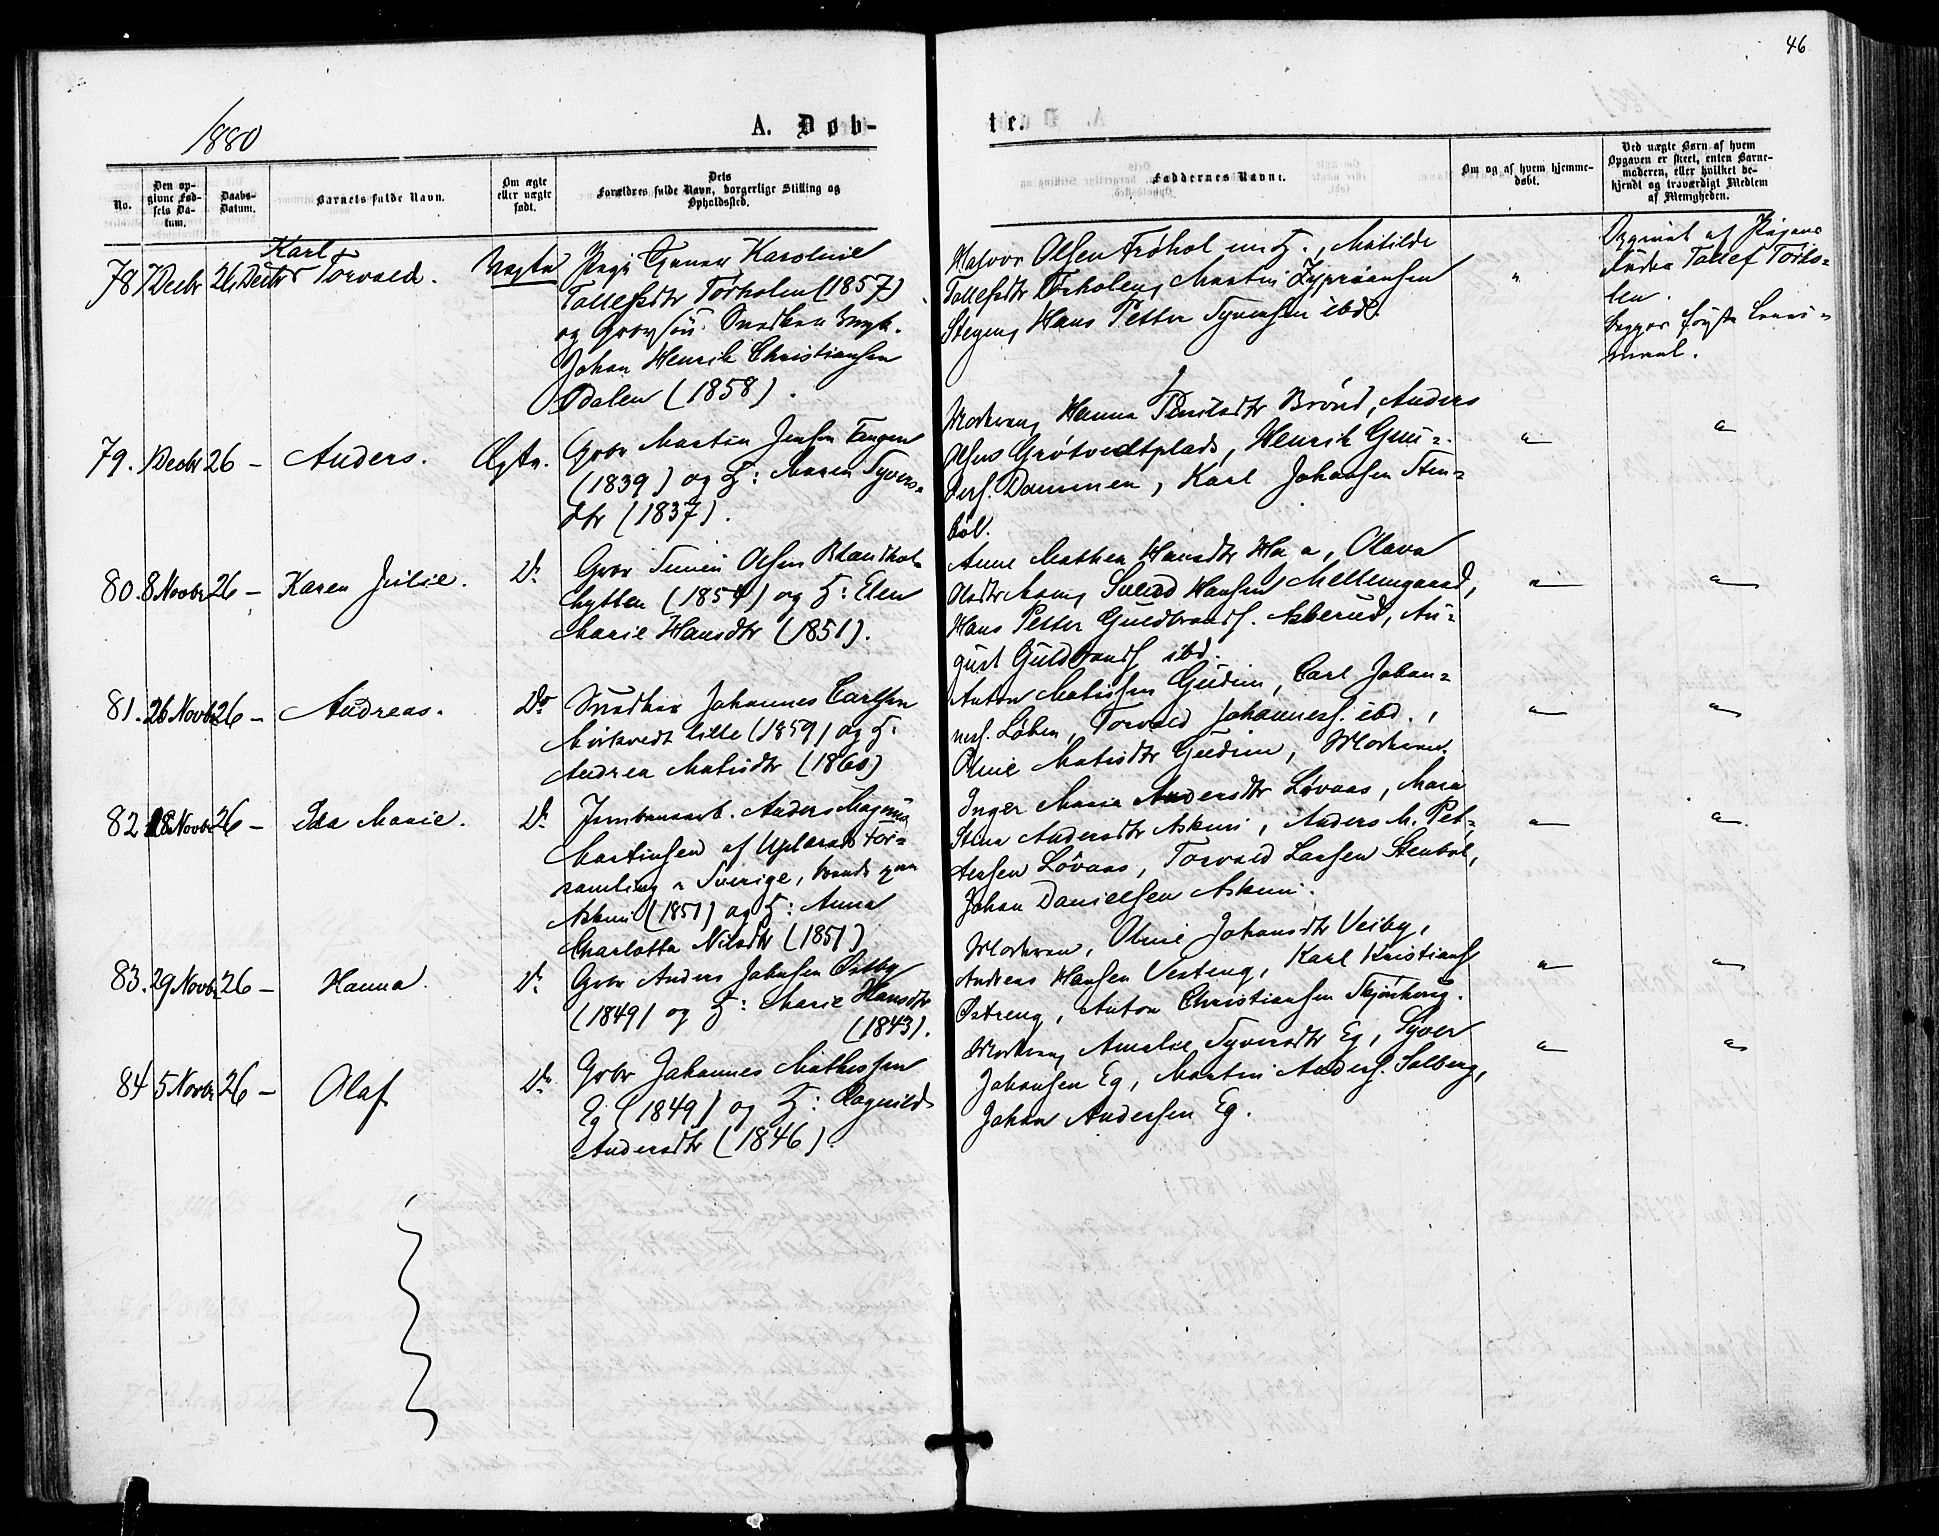 46
1880
A. Døb-
te.
No.
Den op-
givne Fød-
sels Da-
tum.
Daabs-
Datum.
Barnets fulde Navn.
Om ægte
eller uægte
født.
Dets
Forældres fulde Navn, borgerlige Stilling og
Opholdssted.
Faddernes Navne.
Om og af hvem hjemme-
døbt.
Ved uægte Børn af hvem
Opgaven er skeet, enten Barne-
moderen, eller hvilket be-
kjendt og troværdigt Medlem
af Menigheden.
78 7 Decbr 26 Decbr Karl Torvald. Uægte
Pige Karoline
Tollefsdtr Torholen (1857)
og
Johan Henrik Christiansen
Dalen (1858).
Halvor Olsen Frøhol, Matilde
Tollefsdtr Torholen, Martin Zypriansen
Stegen, Hans Petter Syversen ibd.
"
Opgivet af Pigens
Fader Tollef Torho-
len.
Begges første Leier-
maal.
79. 1 Decbr 26 – Anders. Ægte.
Gbr Martin Jensen Tangen
(1839) og H: Maren Syvers-
dtr (1837).
Modren, Hanna Brønd, Anders
Olsen Grøtvedtplads, Henrik Gun-
ders. Dammen, Karl Johansen Sten-
bøl.
" "
80. 8 Novbr 26 – Karen Julie. Do
Gbr Simen Olsen
hytten (1854) og H: Elen
Marie Hansdtr (1851).
Anne Mathea Hansdtr Haa, Olava
Olsdtr Svend Hansen Mellemgaard,
Hans Petter Guldbrands. Asberud, Au-
gust Guldbrands. ibd.
" "
81. 26 Novbr 26 – Andreas. Do
Snedker Johannes Carlsen
Mörkvedt lille (1859) og H:
Andrea Matisdtr (1860)
Anton Matissen Gudim, Carl Johan-
nes. Løken, Torvald Johannes. ibd.,
Oline Matisdtr Gudim, Modren.
" "
82 18 Novbr 26 – Ida Marie. Do
Jernbanearb. Anders Magnus
Martinsen af For-
samling i Sverige, boende paa
Askim (1851) og H: Anna
Charlotta Nilsdtr (1851)
Inger Maria Andersdtr Løvaas, Mara
Stina Andersdtr Askim, Anders M. Pet-
tersen Løvaas, Torvald Larsen Stenbøl,
Johan Danielsen Askim.
" "
83. 29 Novbr 26 – Hanna. Do
Gbr Anders Johnsen Østby
(1849) og H: Marie Hansdtr
(1843).
Modren, Oline Johansdtr Veiby,
Andreas Hansen Vesteng, Karl Kristians.
Østreng, Anton Christiansen
" "
84 5 Novbr 26 – Olaf Do
Gbr Johannes Mathissen
Eg (1849) og H: Ragnild
Andersdtr (1846).
Modren, Amalie Syversdtr Eg, Syver
Johansen Eg, Martin Anders. Solberg,
Johan Andersen Eg.
" "